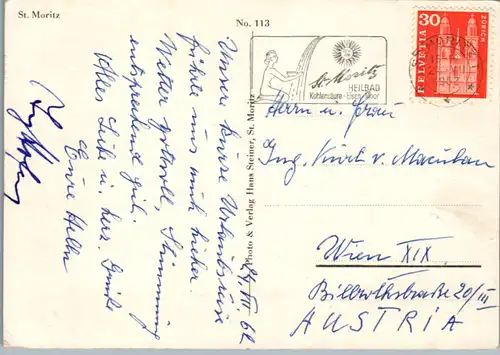 St. Moritz
No. 113
24. VII 62
Unsere kurze Urlaubsreise
führte uns auch hierher.
Wetter gottvoll, Stimmung
entsprechend gut.
Alles Liebe u. herz. Grüße
Eure Hella
Photo & Verlag Hans Steiner, St. Moritz
St. Moritz
HEILBAD
Kohlensäure-Eisen-Moor
30
HELVETIA
ZÜRICH
Herrn u. Frau
Ing. Kurt v.
Wien XIX
Billrothstraße 20/III
AUSTRIA